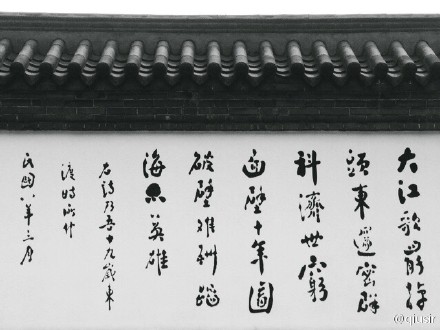 大江歌罷掉
頭東邃密群
科濟世窮
面壁十年圖
破壁難酬蹈
海亦英雄
右詩乃吾十九歲東
渡時所作
民國八年三月
@qiusir